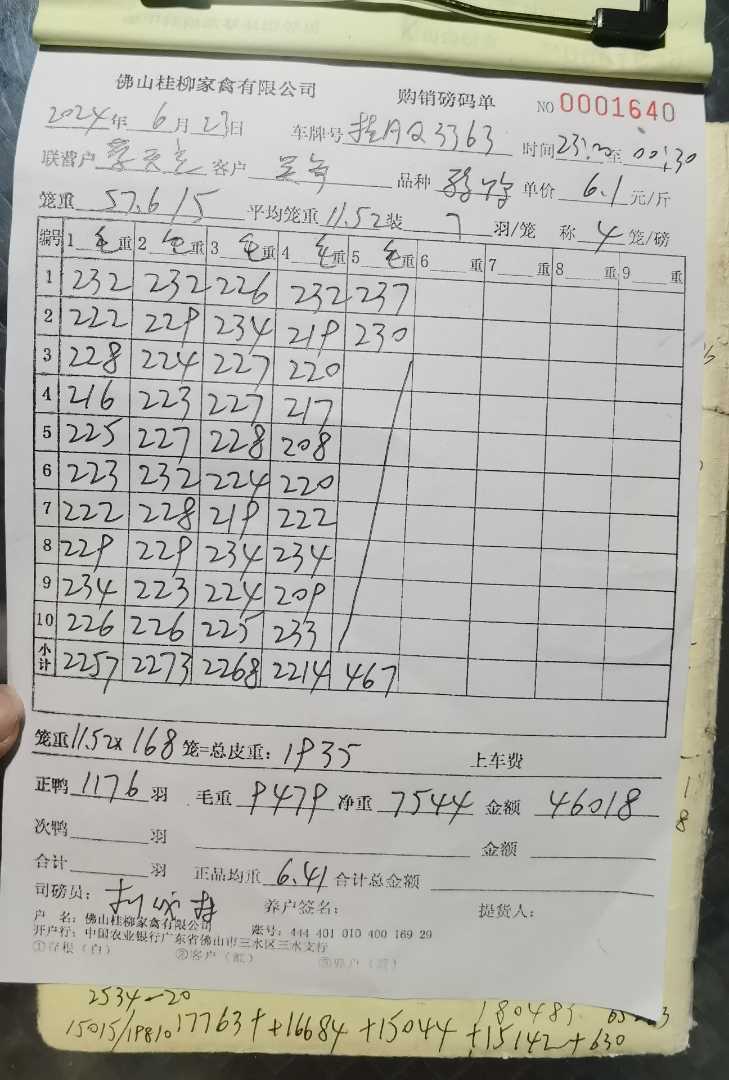 佛山桂柳家禽有限公司 购销磅码单 NO 0001640
2024年 6月 23日 车牌号 桂AQ3363 时间 23:20至 00:30
联营户 客户 品种 单价 6.1 元/斤
笼重 57.6/5 平均笼重 11.52 装 7 羽/笼 称 4 笼/磅
编号 1 毛重 2 毛重 3 毛重 4 毛重 5 毛重 6 重 7 重 8 重 9 重
1 232 232 226 232 237
2 222 229 234 219 230
3 228 224 227 220
4 216 223 227 217
5 225 227 228 208
6 223 232 224 220
7 222 228 219 222
8 229 229 234 234
9 234 223 224 209
10 226 226 225 233
小计 2257 2273 2268 2214 467
笼重 11.52x 168 笼=总皮重: 1935 上车费
正鸭 1176 羽 毛重 9479 净重 7544 金额 46018
次鸭 羽 金额
合计 羽 正品均重 6.41 合计总金额
司磅员: 养户签名: 提货人:
户 名: 佛山桂柳家禽有限公司 账号: 444 401 010 400 169 29
开户行: 中国农业银行广东省佛山市三水区三水支行
①存根(白) ②客户(红) ③养户(蓝)
2534-20 180483
15015/19810 17763++16684 +15044 +15142+630